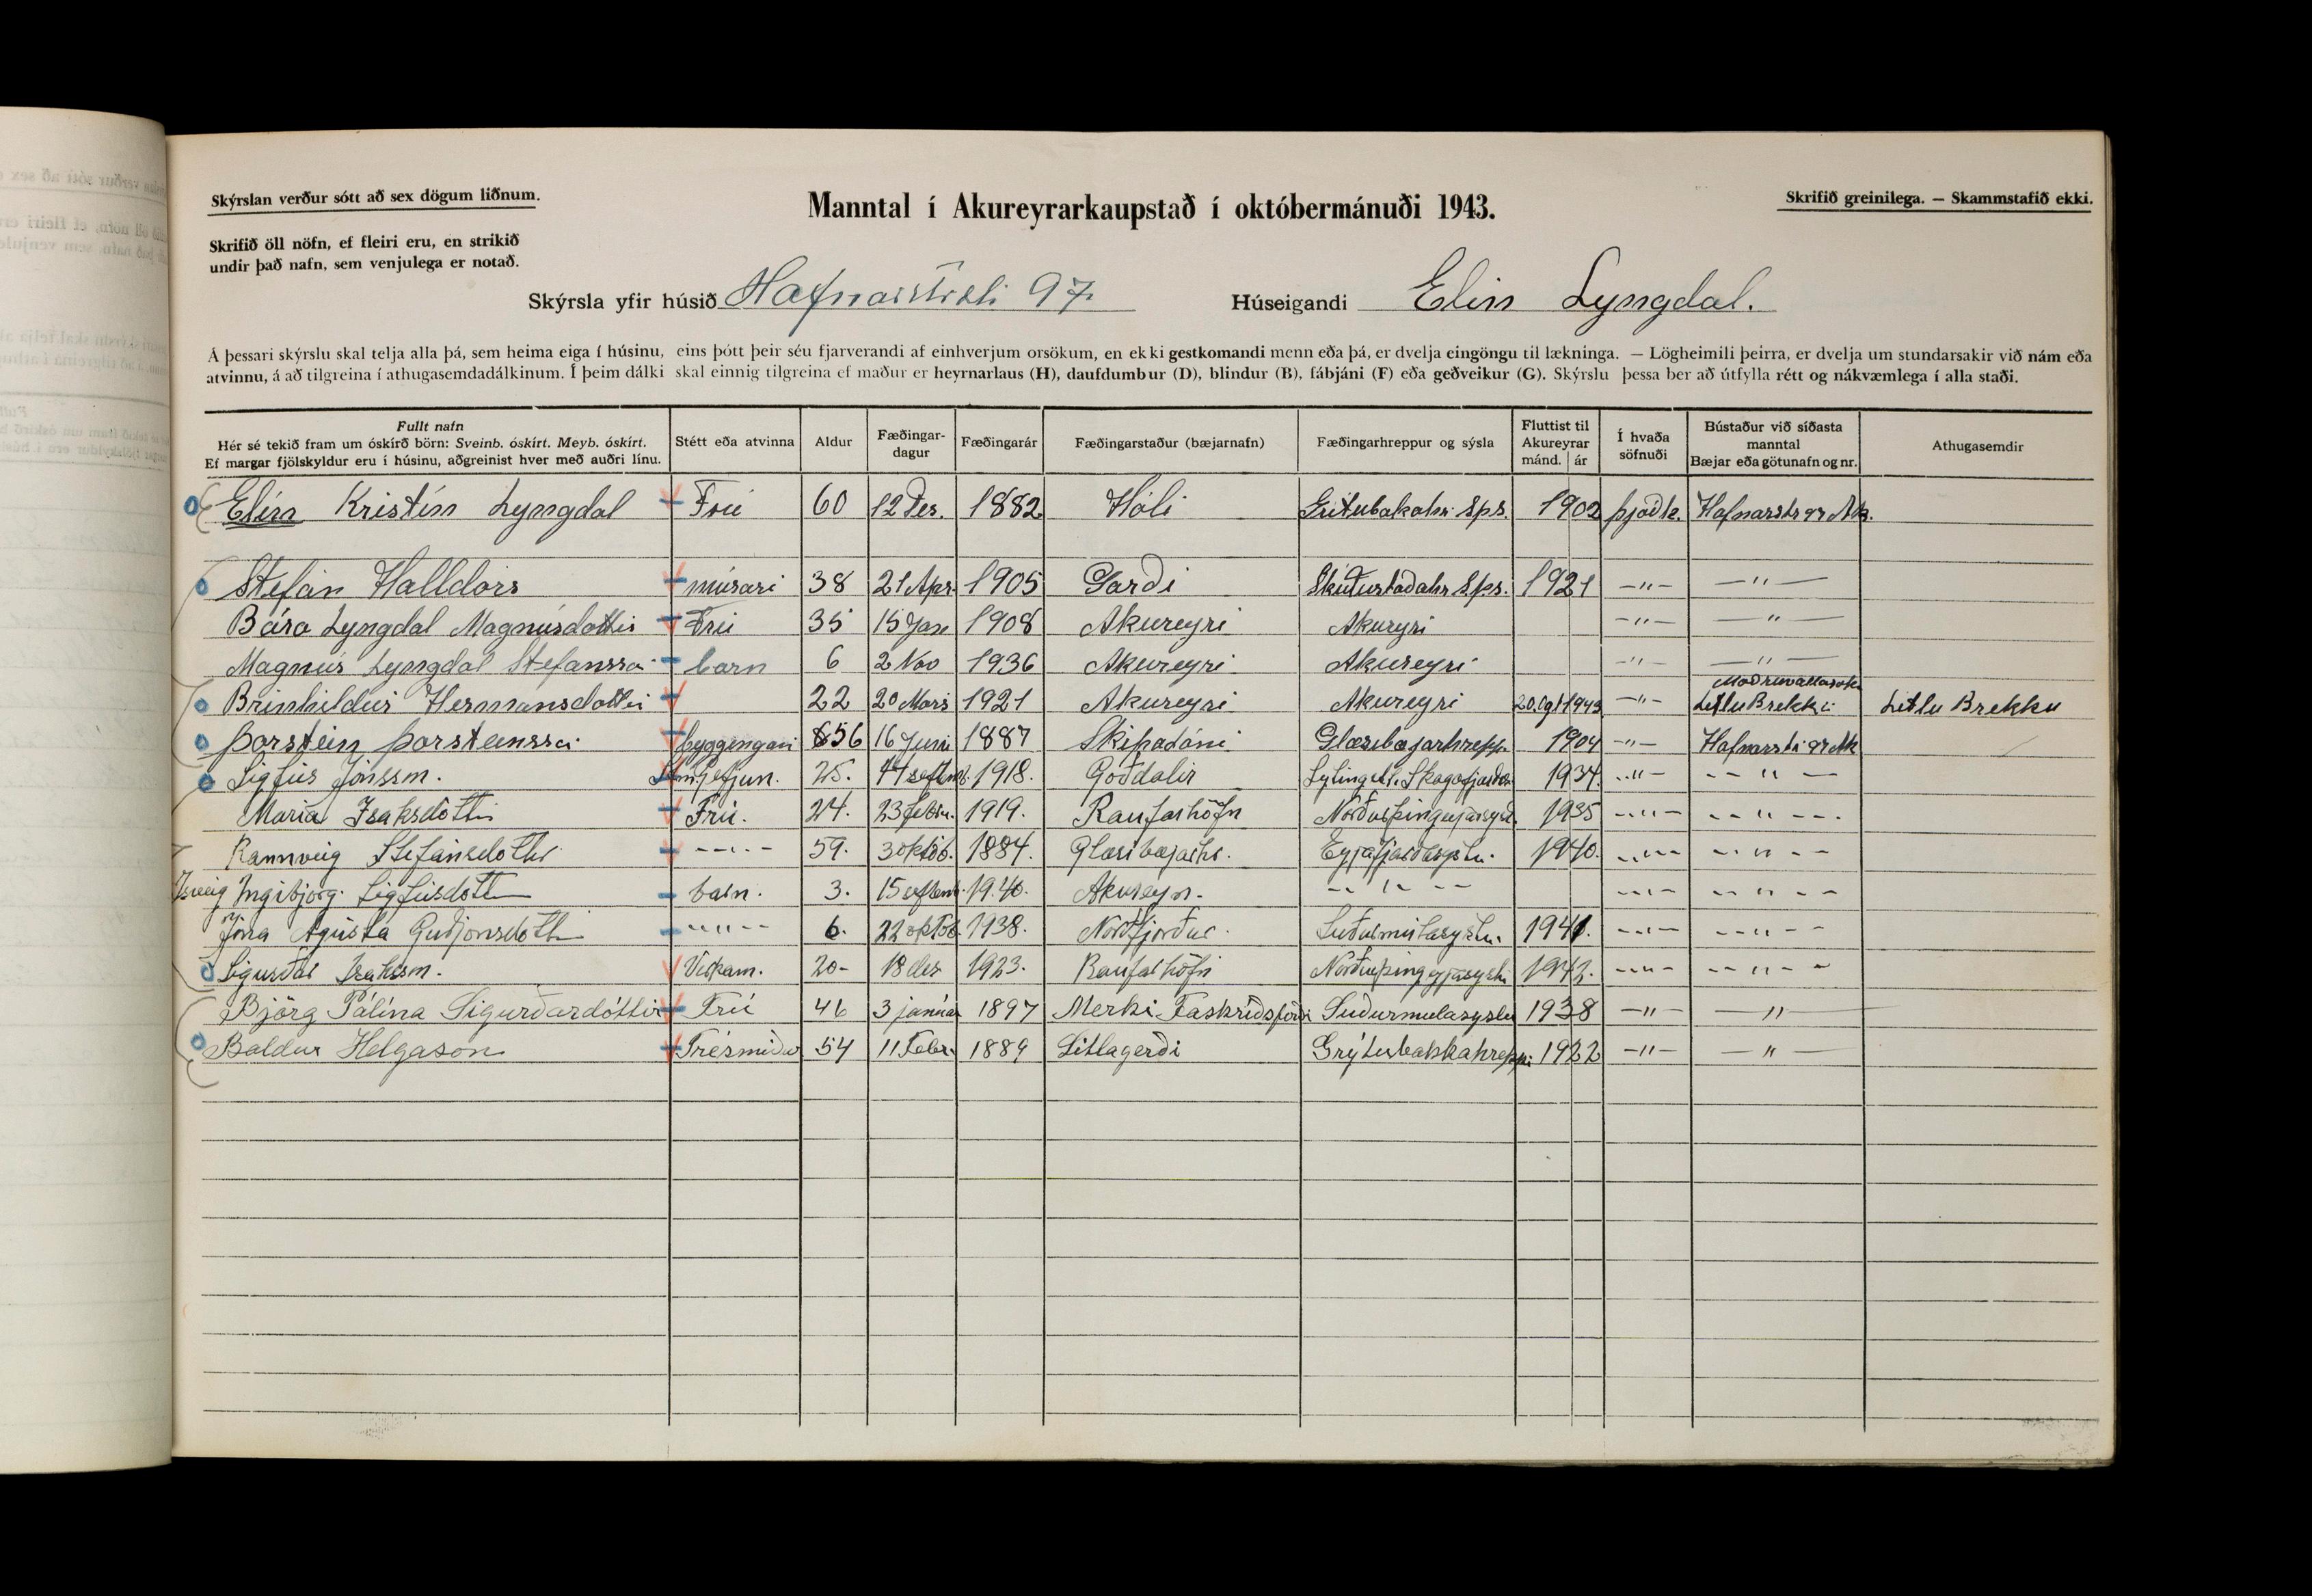 Skýrslan verður sótt að sex dögum liðnum.
Manntal í Akureyrarkaupstað í októbermánuði 1943.
Skrifið greinilega. — Skammstafið ekki.
Skrifið öll nöfn, ef fleiri eru, en strikið
undir það nafn, sem venjulega er notað.
Skýrsla yfir húsið Hafnarstræti 97. Húseigandi Elin Lyngdal.
Á þessari skýrslu skal telja alla þá, sem heima eiga í húsinu, eins þótt þeir séu fjarverandi af einhverjum orsökum, en ekki gestkomandi menn eða þá, er dvelja eingöngu til lækninga. — Lögheimili þeirra, er dvelja um stundarsakir við nám eða
atvinnu, á að tilgreina í athugasemdadálkinum. Í þeim dálki skal einnig tilgreina ef maður er heyrnarlaus (H), daufdumbur (D), blindur (B), fábjáni (F) eða geðveikur (G). Skýrslu þessa ber að útfylla rétt og nákvæmlega í alla staði.
Fullt nafn
Hér sé tekið fram um óskírð börn: Sveinb. óskírt. Meyb. óskírt.
Ef margar fjölskyldur eru í húsinu, aðgreinist hver með auðri línu.
Stétt eða atvinna
Aldur
Fæðingar-
dagur
Fæðingarár
Fæðingarstaður (bæjarnafn)
Fæðingarhreppur og sýsla
Fluttist til
Akureyrar
mánd. | ár
Í hvaða
söfnuði
Bústaður við síðasta
manntal
Bæjar eða götunafn og nr.
Athugasemdir
Elín Kristín Lyngdal Frú 60 12 Des. 1882 Hóli Grítubakahr. Sþs. 1902 þjóðk. Hafnarstr 97 Ak.
Stefán Halldórs múrari 38 21 Apr. 1905 Garði Skútustaðahr Sþs. 1921 —"— —"—
Bára Lyngdal Magnúsdóttir Frú 35 15 Jan 1908 Akureyri Akuryri —"— —"—
Magnús Lyngdal Stefánsson barn 6 2 Nov 1936 Akureyri Akureyri —"— —"—
Brinhildur Hermannsdóttir 22 20 Mars 1921 Akureyri Akureyri 1943 —"— Litlu Brekku Litlu Brekku
Þorsteinn Þorsteinsson byggingam 56 16 Juni 1887 Skipadóni Glæsibæjarhrepp. 1904 —"— Hafnarstr 97 Ak
Sigfús Jónsson. 25. septemb. 1918. Goðdalir Lytingsst. Skagafjarðar 1934. —"— —"—
María Ísaksdóttir Frú. 24. 23 febru. 1919. Raufarhöfn Norðurþingeyjarsýsl. 1935 —"— —"—
Rannveig Stefánsdóttir —"— 59. 3 októb. 1884. Glæsibæjarhr. Eyjafjarðarsýslu. 1940. —"— —"—
Ísveig Ingibjörg Sigfúsdóttir barn. 3. 15 septemb. 1940. Akureyri. —"— —"— —"—
Jóna Ágústa Guðjónsdóttir —"— 6. 22 októb 1938. Norðfjörður. Suðurmúlasýslu. 1941. —"— —"—
Sigurður Ísaksson. Verkam. 20- 18 des 1923. Raufarhöfn Norðurþingeyjasyslu 1942. —"— —"—
Björg Pálína Sigurðardóttir Frú 46 3 janúar 1897 Merki Faskrúðsfirði Suðurmulasyslu 1938 —"— —"—
Baldur Helgason Trésmiður 54 11 Febr. 1889 Litlagerði Grýtubakkahreppi 1922 —"— —"—